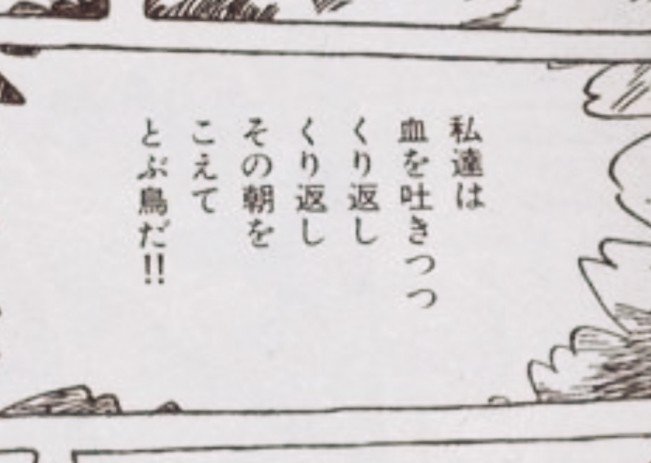 私達は
血を吐きつつ
くり返し
くり返し
その朝を
こえて
とぶ鳥だ!!